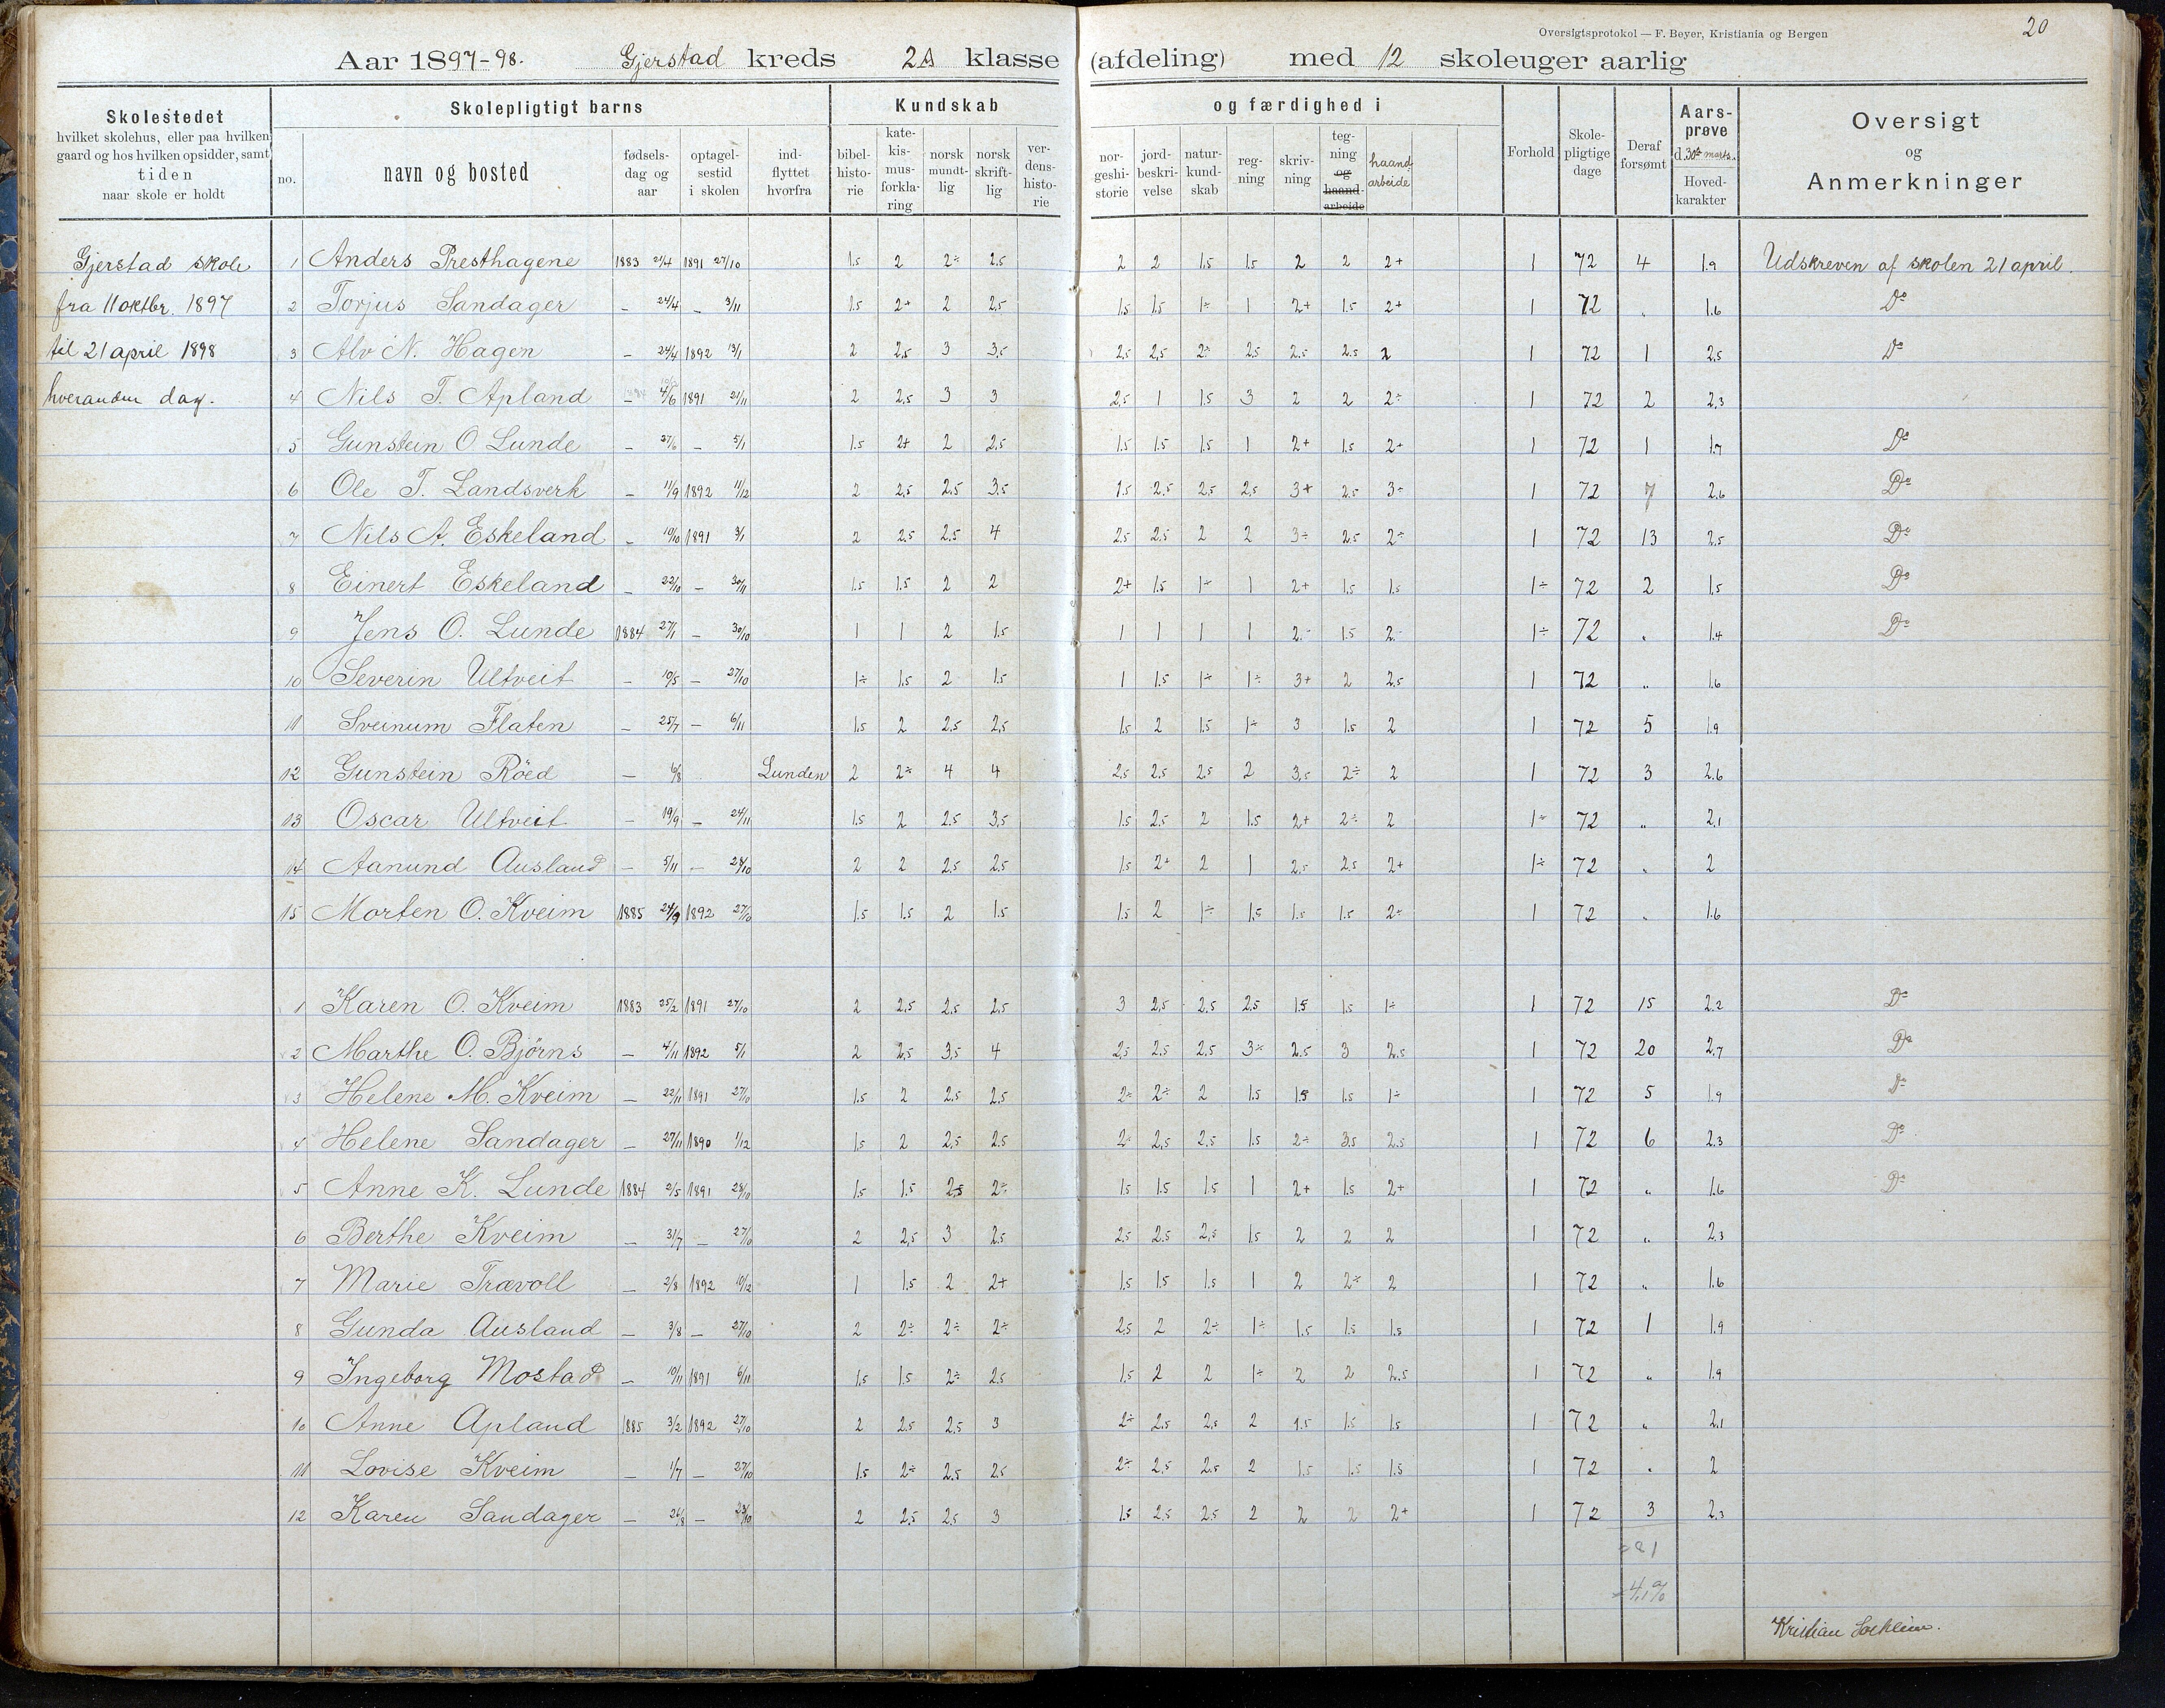 Oversigtsprotokol — F. Beyer, Kristiania og Bergen
20
Aar 1897-98. Gjerstad kreds 2A klasse (afdeling) med 12 skoleuger aarlig
Skolestedet
hvilket skolehus, eller paa hvilken
gaard og hos hvilken opsidder, samt
tiden
naar skole er holdt
Skolepligtigt barns
no.
navn og bosted
fødsels-
dag og
aar
optagel-
sestid
i skolen
ind-
flyttet
hvorfra
Kundskab
bibel-
histo-
rie
kate-
kis-
mus-
forkla-
ring
norsk
mundt-
lig
norsk
skrift-
lig
ver-
dens-
histo-
rie
og færdighed i
nor-
geshi-
storie
jord-
beskri-
velse
natur-
kund-
skab
reg-
ning
skriv-
ning
teg-
ning
og
haand-
arbeide
haand-
arbeide
Forhold
Skole-
pligtige
dage
Deraf
forsømt
Aars-
prøve
d. 30te marts.
Hoved-
karakter
Oversigt
og
Anmerkninger
Gjerstad skole
fra 11 oktbr. 1897
til 21 april 1898
hveranden dag.
1 Anders Presthagene 1883 24/4 1891 27/10 1.5 2 2÷ 2.5 2 2 1.5 1.5 2 2 2+ 1 72 4 1.9 Udskreven af skolen 21 april.
2 Torjus Sandager — 24/4 — 3/11 1.5 2+ 2 2.5 1.5 1.5 1÷ 1 2+ 1.5 2+ 1 72 " 1.6 Do
3 Alv N. Hagen — 24/4 1892 13/1 2 2,5 3 3,5 2,5 2,5 2÷ 2,5 2.5 2.5 2 1 72 1 2,5 Do
4 Nils T. Apland — 4/6 1891 21/11 2 2,5 3 3 2,5 1 1.5 3 2 2 2÷ 1 72 2 2,3
5 Gunstein O Lunde — 27/6 — 5/1 1.5 2+ 2 2.5 1.5 1.5 1.5 1 2+ 1.5 2+ 1 72 1 1.7 Do
6 Ole T. Landsverk — 11/9 1892 11/12 2 2,5 2.5 3,5 1.5 2.5 2,5 2,5 3+ 2.5 3÷ 1 72 7 2,6 Do
7 Nils A. Eskeland — 10/10 1891 3/1 2 2.5 2.5 4 2.5 2.5 2 2 3÷ 2.5 2÷ 1 72 13 2,5 Do
8 Einert Eskeland — 22/10 — 30/11 1.5 1.5 2 2 2+ 1.5 1÷ 1 2+ 1.5 1.5 1÷ 72 2 1.5 Do
9 Jens O. Lunde 1884 27/1 — 30/10 1 1 2 1.5 1 1 1 1 2÷ 1.5 2÷ 1÷ 72 " 1.4 Do
10 Severin Ultveit — 10/5 — 27/10 1÷ 1.5 2 1.5 1 1.5 1÷ 1÷ 3+ 2 2,5 1 72 " 1.6
11 Sveinum Flaten — 25/7 — 6/11 1.5 2 2.5 2,5 1.5 2 1.5 1÷ 3 1.5 2 1 72 5 1.9
12 Gunstein Röed — 6/8 Lunden 2 2÷ 4 4 2,5 2.5 2.5 2 3,5 2÷ 2 1 72 3 2.6
13 Oscar Ultveit — 19/9 — 24/11 1.5 2 2.5 3,5 1.5 2.5 2 1.5 2+ 2÷ 2 1÷ 72 " 2,1
14 Aanund Ausland — 5/11 — 28/10 2 2 2.5 2.5 1.5 2+ 2 1 2.5 2.5 2+ 1÷ 72 " 2
15 Morten O. Kveim 1885 24/9 1892 27/10 1.5 1.5 2 1.5 1.5 2 1÷ 1.5 1.5 1.5 2÷ 1 72 " 1.6
1 Karen O. Kveim 1883 25/2 1891 27/10 2 2,5 2.5 2,5 3 2,5 2,5 2.5 1.5 1.5 1÷ 1 72 15 2.2 Do
2 Marthe O. Bjørns — 4/11 1892 5/1 2 2,5 3,5 4 2,5 2.5 2.5 3÷ 2.5 3 2.5 1 72 20 2,7 Do
3 Helene M. Kveim — 22/11 1891 27/10 1.5 2 2.5 2,5 2÷ 2÷ 2 1.5 1.5 1.5 1÷ 1 72 5 1.9 Do
4 Helene Sandager — 27/11 1890 1/12 1.5 2 2,5 2.5 2÷ 2,5 2,5 1.5 2÷ 3.5 2.5 1 72 6 2.3 Do
5 Anne K. Lunde 1884 2/5 1891 28/10 1.5 1.5 2,5 2÷ 1.5 1.5 1.5 1 2+ 1.5 2+ 1 72 " 1.6 Do
6 Berthe Kveim — 31/7 — 27/10 2 2,5 3 2.5 2.5 2.5 2,5 1.5 2 2 2 1 72 " 2.3
7 Marie Trævoll — 2/8 1892 10/12 1 1.5 2 2+ 1.5 1.5 1.5 1 2 2÷ 2 1 72 " 1.6
8 Gunda Ausland — 3/8 — 27/10 2 2÷ 2÷ 2÷ 2,5 2 2÷ 1÷ 1.5 1.5 1.5 1 72 1 1.9
9 Ingeborg Mostad — 10/11 1891 6/11 1.5 1.5 2÷ 2.5 1.5 2 2 1÷ 2 2 2.5 1 72 " 1.9
10 Anne Apland 1885 3/2 1892 27/10 2 2.5 2,5 3 2÷ 2.5 2,5 2 1.5 1.5 1.5 1 72 " 2.1
11 Lovise Kveim — 1/7 — 27/10 1.5 2÷ 2.5 2.5 2÷ 2.5 2.5 2 1.5 1.5 1.5 1 72 " 2
12 Karen Sandager — 26/8 — 28/10 2 2,5 2.5 3 1.5 2,5 2.5 2 2 2 2+ 1 72 3 2,3
=81
=4,1%